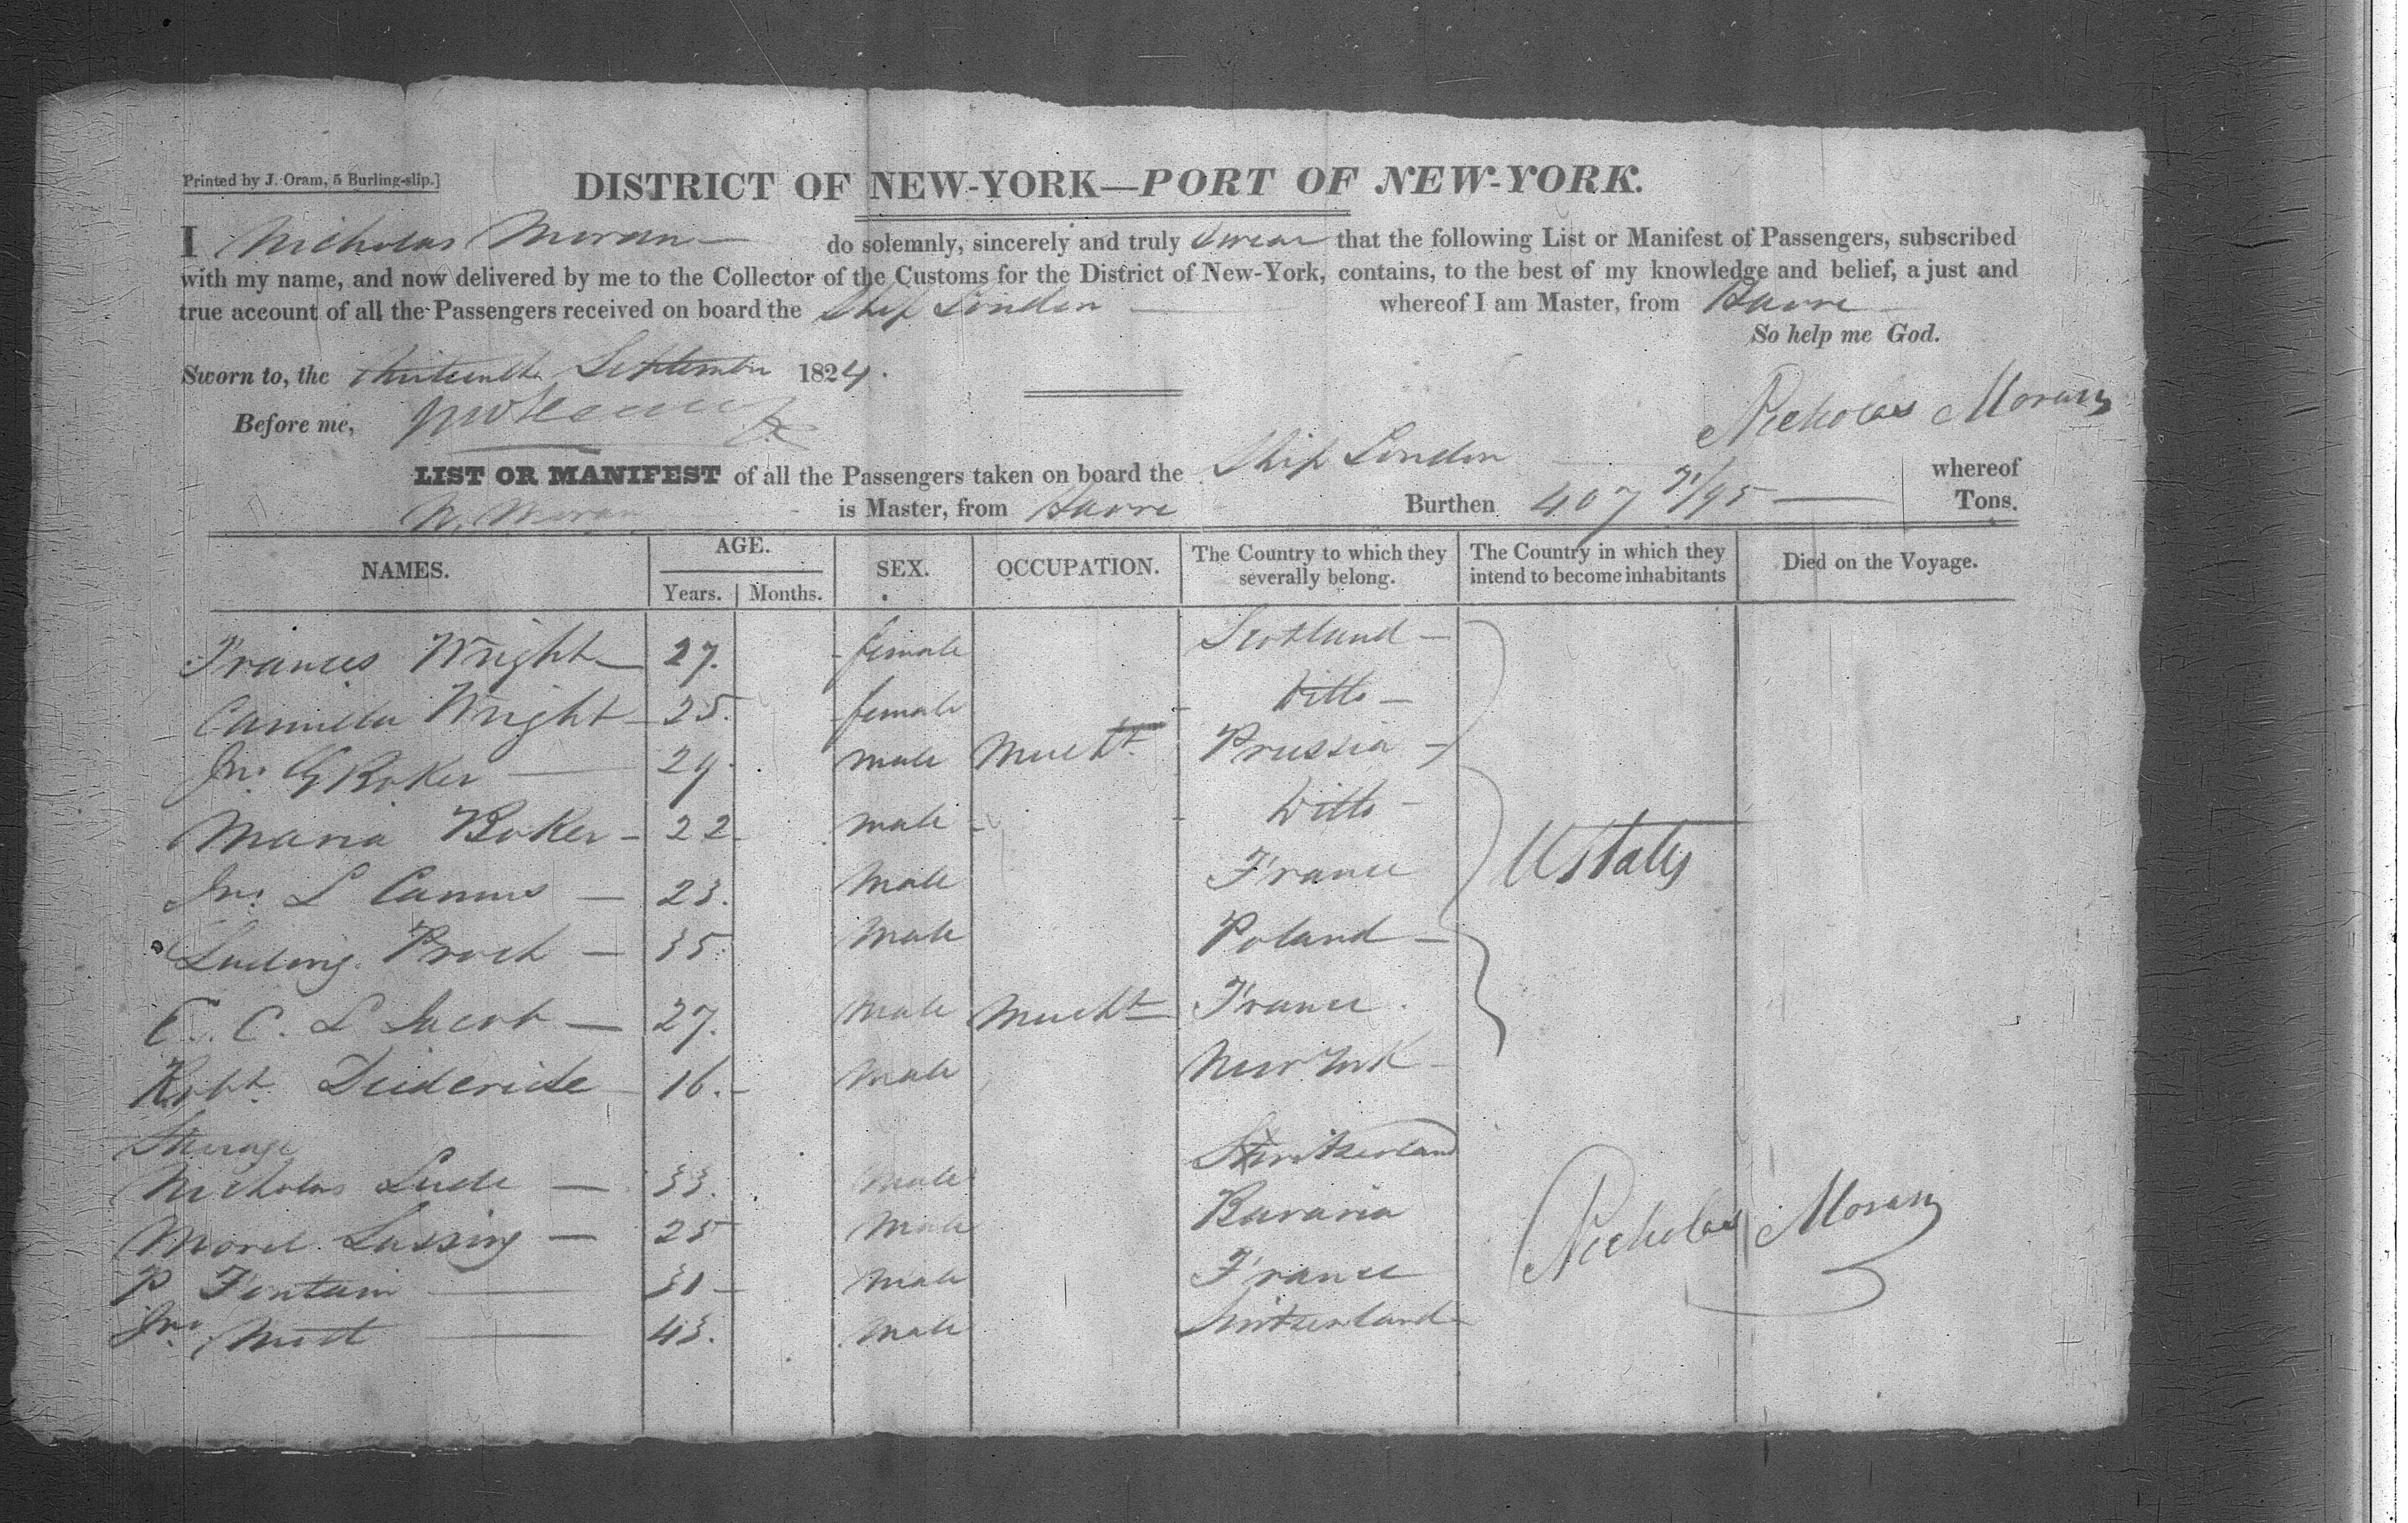 Printed by J. Oram, 5 Burling-slip.]
DISTRICT OF NEW-YORK—PORT OF NEW-YORK.
I Nicholas Moran do solemnly, sincerely and truly swear that the following List or Manifest of Passengers, subscribed
with my name, and now delivered by me to the Collector of the Customs for the District of New-York, contains, to the best of my knowledge and belief, a just and
true account of all the Passengers received on board the Ship London whereof I am Master, from Havre
So help me God.
Sworn to, the thirteenth September 1824.
Nicholas Moran
Before me,
LIST OR MANIFEST of all the Passengers taken on board the Ship London whereof
N. Moran is Master, from Havre Burthen 407 71/95 Tons.
NAMES. AGE. Years. Months. SEX. OCCUPATION. The Country to which they severally belong. The Country in which they intend to become inhabitants Died on the Voyage.
Frances Wright 27. female Scotland
Camilla Wright 25. female Ditto
Jno. G Boker 29. male Mercht. Prussia
Maria Boker 22 male Ditto
Jno. L Camus 23. Male France
U States
Ludwig Proch 35 Male Poland
C. C. L Jacob 27. Male Mercht France.
Robt. Diederide 16. Male New York
Steerage
Nicholas Lude 33. Male Switserland
Morel Lassing 25 Male Bavaria
Nicholas Moran
P Fontain 31 Male France
Jno. Mott 43. Male Switserland